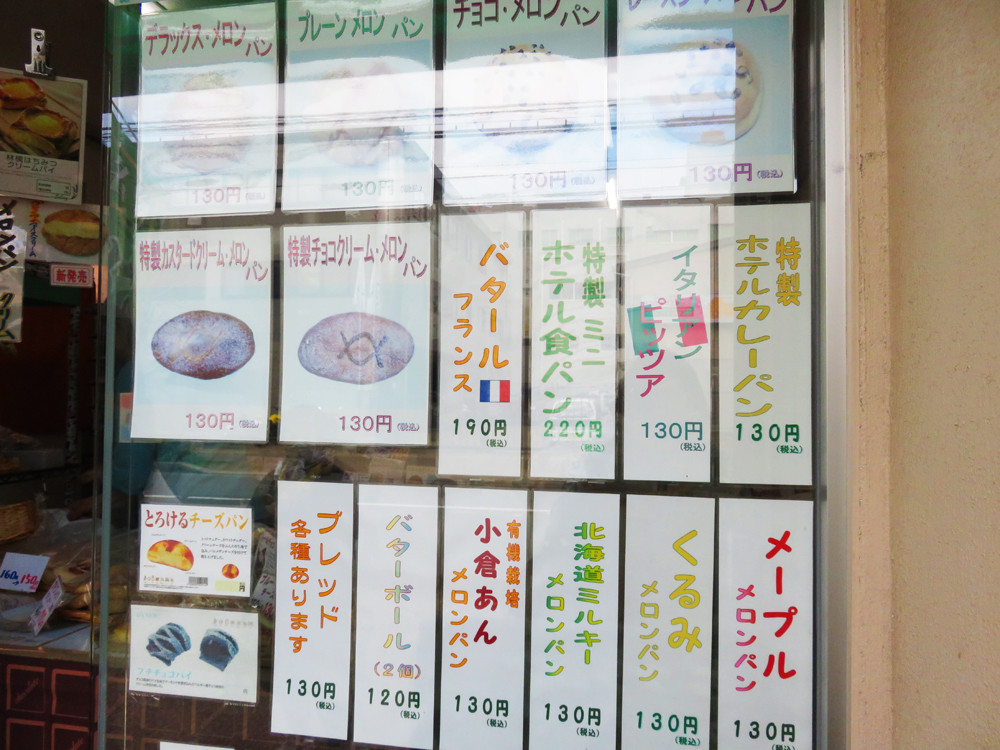 デラックス・メロンパン
130円(税込)
プレーンメロンパン
130円(税込)
チョコ・メロンパン
130円(税込)
パン
130円(税込)
特製はちみつ
クリームパイ
新発売
特製カスタードクリーム・メロンパン
130円(税込)
特製チョコクリーム・メロンパン
130円(税込)
バタール
フランス
190円
(税込)
特製ミニ
ホテル食パン
220円
(税込)
イタリアン
ピッツア
130円
(税込)
特製
ホテルカレーパン
130円
(税込)
160円
150円
とろけるチーズパン
円
プチチョコパイ
円
ブレッド
各種あります
130円
(税込)
バターボール
(2個)
120円
(税込)
有機栽培
小倉あん
メロンパン
130円
(税込)
北海道ミルキー
メロンパン
130円
(税込)
くるみ
メロンパン
130円
(税込)
メープル
メロンパン
130円
(税込)